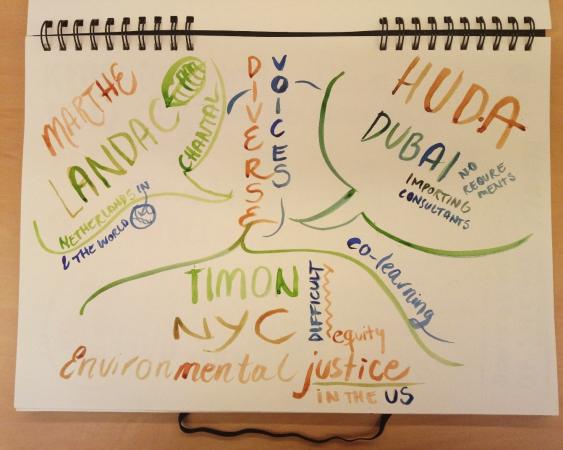 MARTHE
LANDAC
PHD
CHANTAL
NETHERLANDS IN
& THE WORLD
DIVERSE
VOICES
HUDA
DUBAI
NO
REQUIRE
MENTS
IMPORTING
CONSULTANTS
TIMON
NYC
DIFFICULT
equity
co-learning
Environmental justice
IN THE US